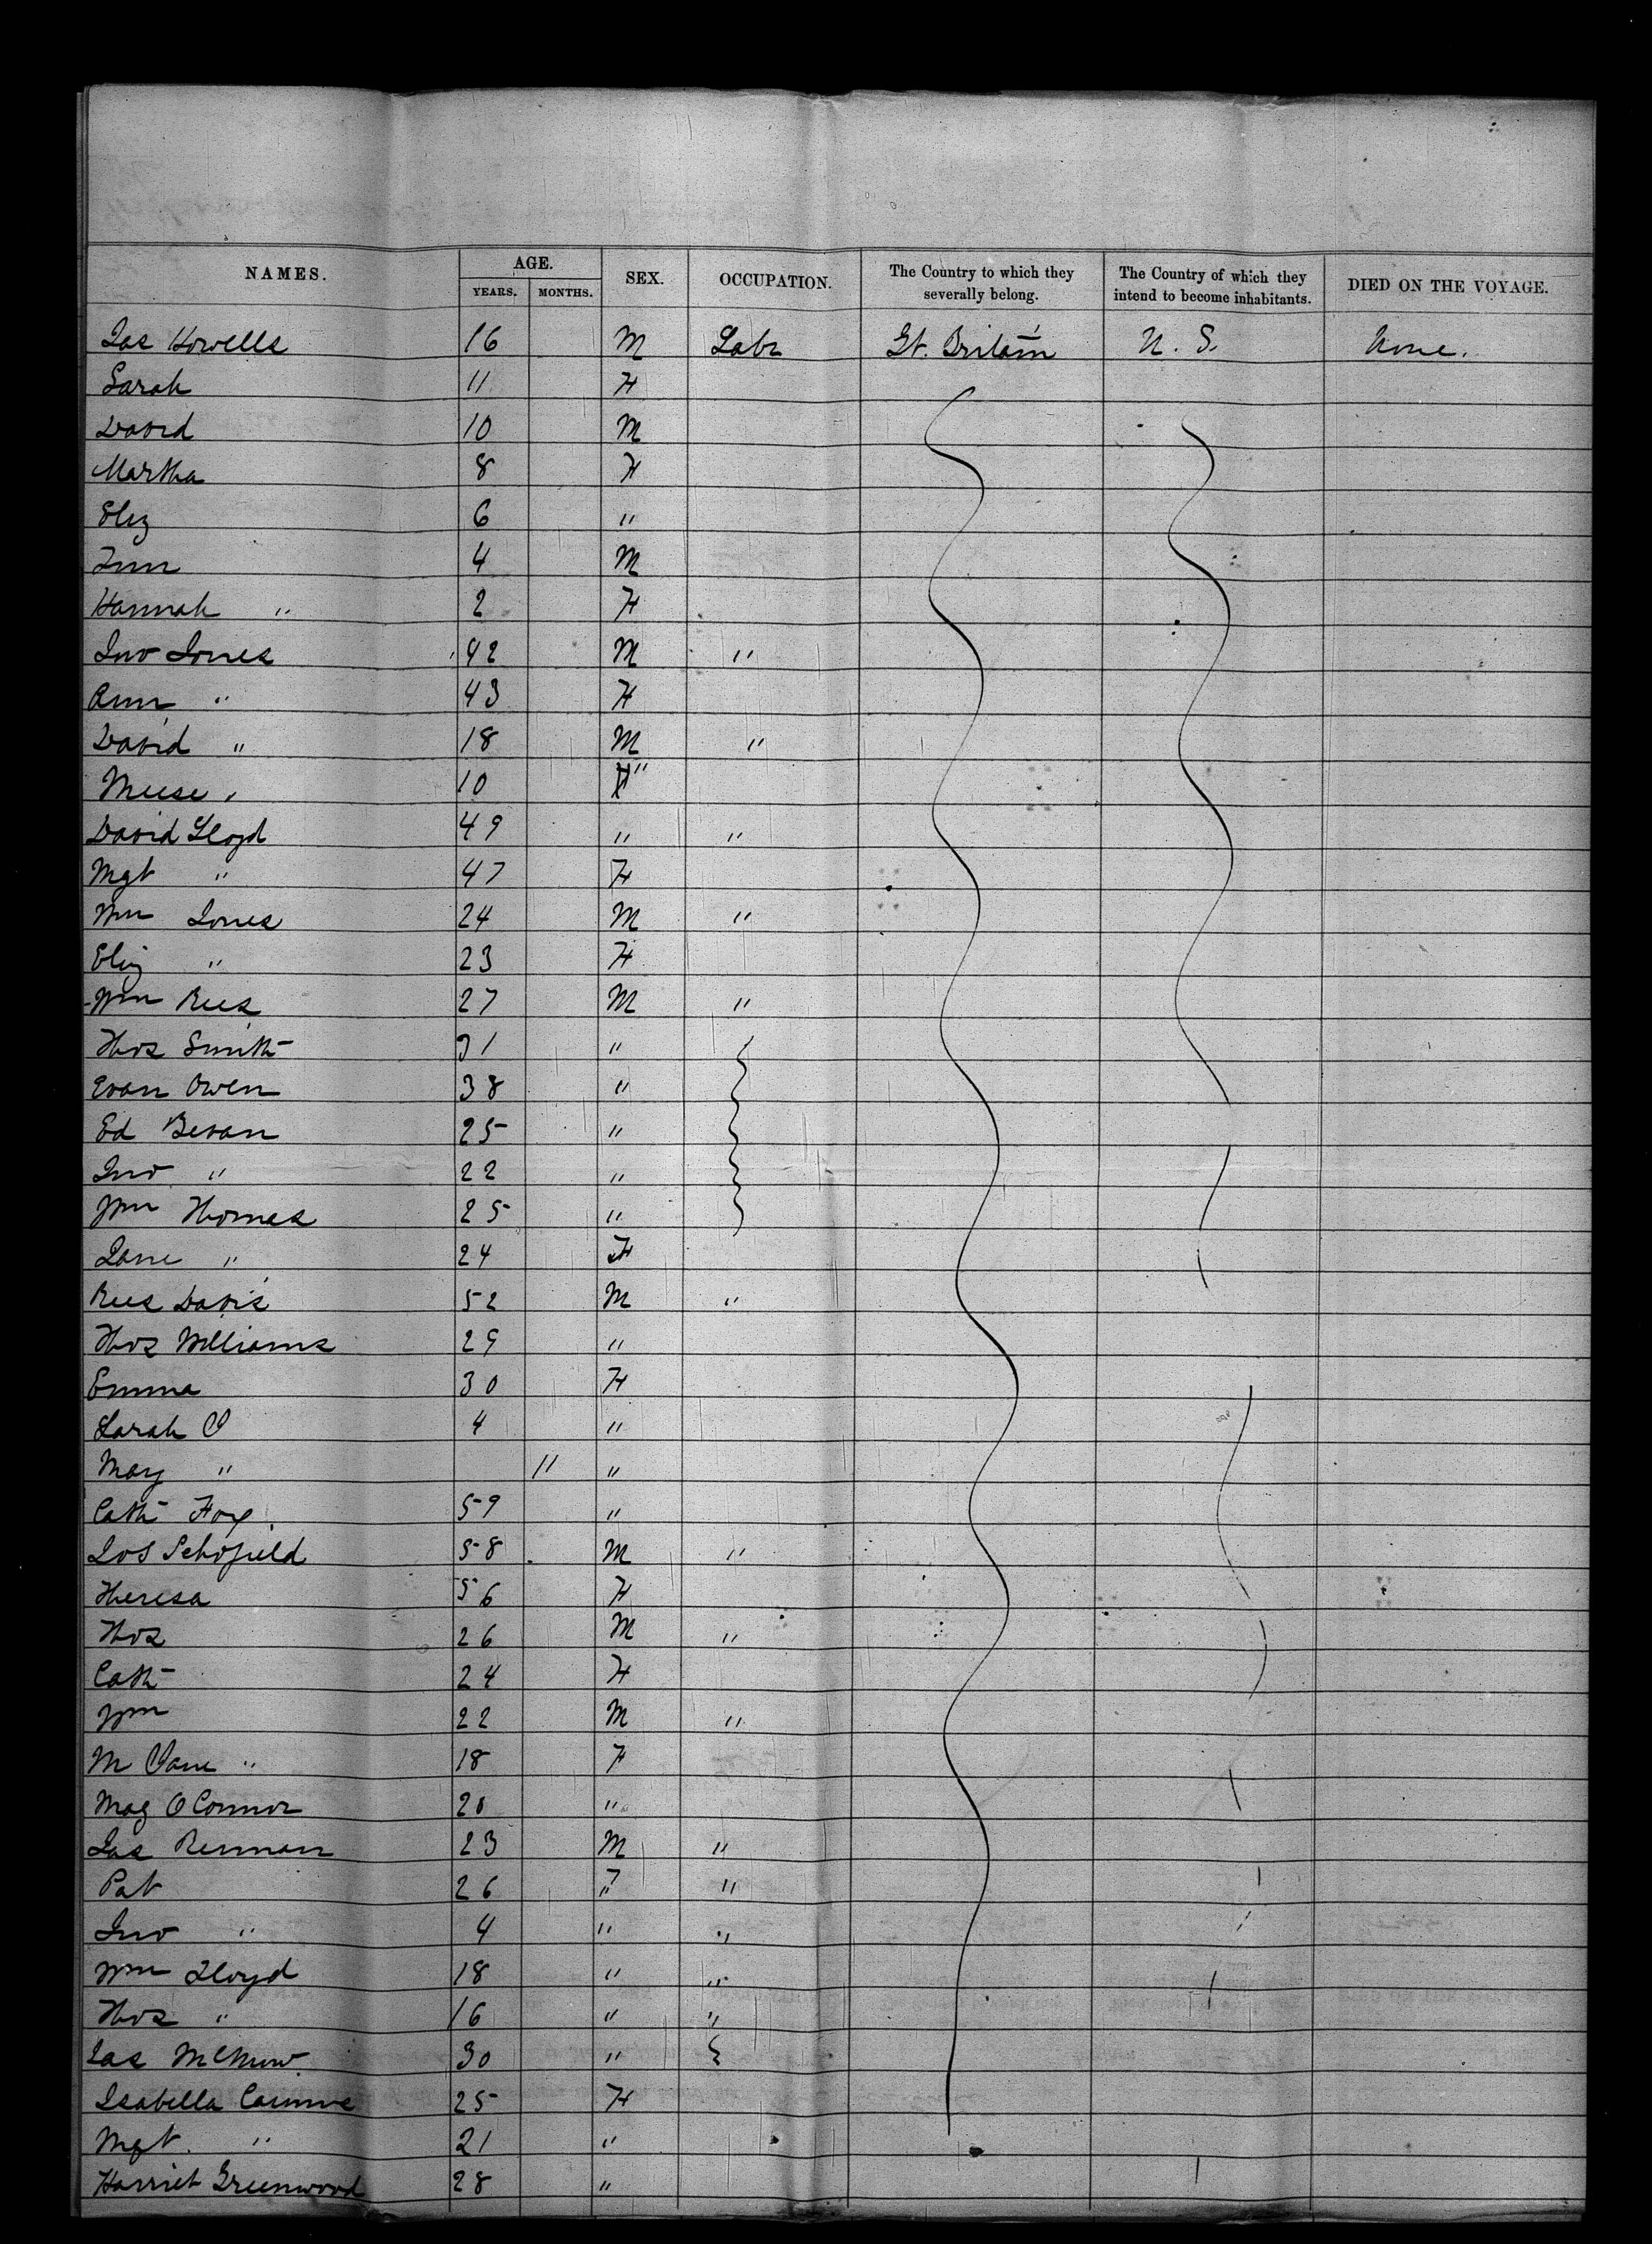 NAMES. AGE. SEX. OCCUPATION. The Country to which they severally belong. The Country of which they intend to become inhabitants. DIED ON THE VOYAGE.
YEARS. MONTHS.
Jas Howells 16 M Labr Gt. Britain U. S. None.
Sarah 11 F
David 10 M
Martha 8 F
Eliz 6 "
4 M
Hannah " 2 F
Jno Jones 42 M "
Ann " 43 F
David " 18 M "
10 "
David Lloyd 49 " "
Mgt " 47 F
Wm Jones 24 M "
Eliz " 23 F
Wm Rees 27 M "
Thos Smith 31 "
Evan Owen 38 "
Ed Bevan 25 "
Jno " 22 "
Wm Thomas 25 "
Jane " 24 F
Rees Davis 52 M "
Thos Williams 29 "
Emma 30 F
Sarah 4 "
Mary " 11 "
Cath Fox 59 "
Jos Schofield 58 M "
Theresa 56 F
Thos 26 M "
Cath 24 F
Wm 22 M "
M Jane " 18 F
Mag O Connor 20 "
Jas 23 M "
Pat 26 " "
Jno " 4 " "
Wm Lloyd 18 " "
Thos " 16 " "
Jas 30 "
Isabella 25 F
Mgt. " 21 "
Harriet Greenwood 28 "